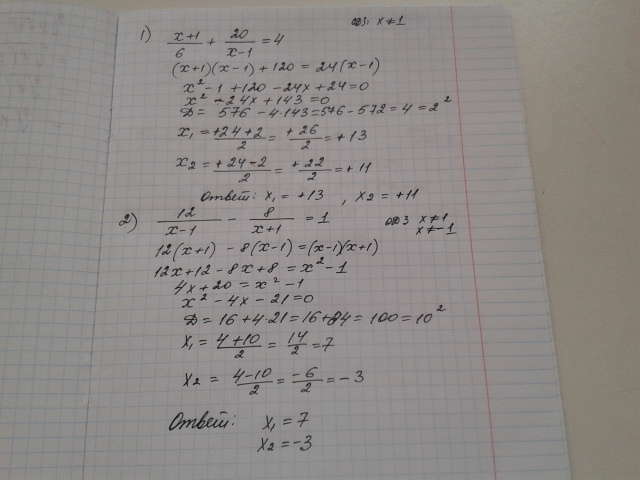 1) (x+1)/6 + 20/(x-1) = 4    ОДЗ: x≠1
(x+1)(x-1)+120 = 24(x-1)
x²-1+120-24x+24=0
x²-24x+143=0
D= 576-4·143=576-572=4=2²
x₁ = (+24+2)/2 = (+26)/2 = +13
x₂ = (+24-2)/2 = (+22)/2 = +11
Ответ: x₁ = +13, x₂ = +11
2) 12/(x-1) - 8/(x+1) = 1    ОДЗ x≠1
x≠-1
12(x+1) - 8(x-1) = (x-1)(x+1)
12x+12-8x+8 = x²-1
4x+20 = x²-1
x²-4x-21=0
D=16+4·21=16+84=100=10²
x₁ = (4+10)/2 = 14/2 = 7
x₂ = (4-10)/2 = -6/2 = -3
Ответ: x₁ = 7
x₂ = -3